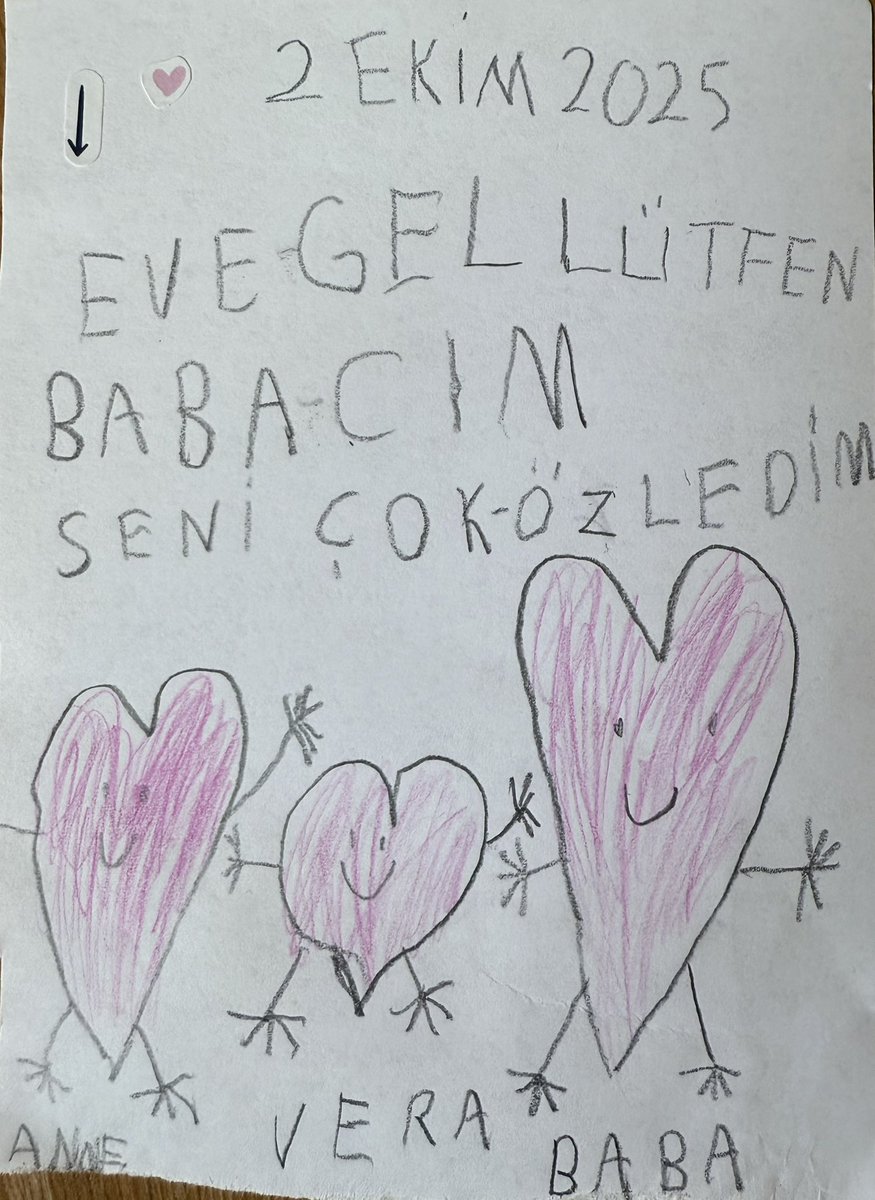 2 EKİM 2025
EVE GEL LÜTFEN
BABACIM
SENİ ÇOK ÖZLEDİM
ANNE VERA BABA